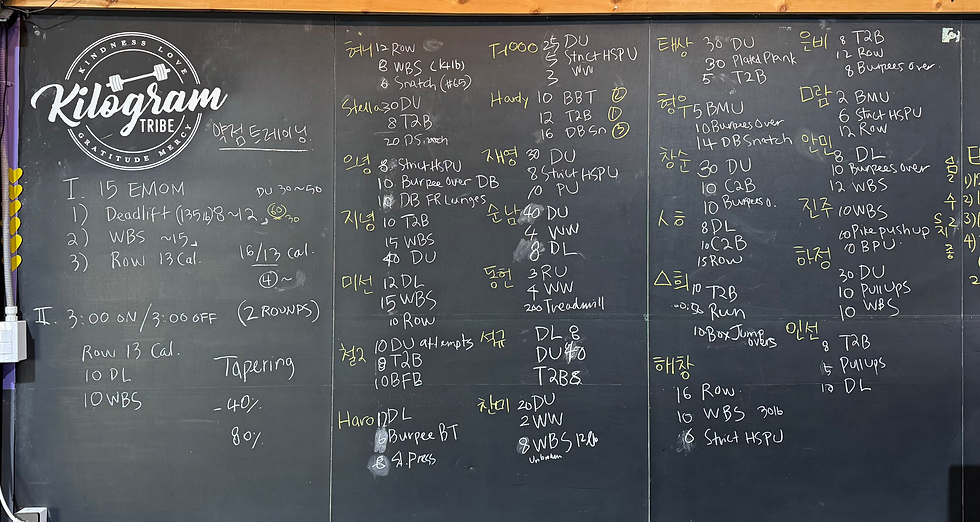 KINDNESS LOVE
Kilogram
TRIBE
GRATITUDE MERCY
약점 트레이닝
I. 15 EMOM
DU 30~50
1) Deadlift (135lb) 8~12
60
30
2) WBS ~15
3) Row 13 Cal.
16/13 Cal.
④~
II. 3:00 ON / 3:00 OFF (2 ROUNDS)
Row 13 Cal.
10 DL
10 WBS
Tapering
-40%
80%
12 Row
8 WBS (14lb)
6 Snatch (#65)
Stella 30 DU
8 T2B
20 DSnatch
8 Strict HSPU
10 Burpee over DB
10 DB FR Lunges
지녕 10 T2B
15 WBS
40 DU
미선 12 DL
15 WBS
10 Row
철2 10 DU attempts
8 T2B
10 BFB
Haro 12 DL
6 Burpee BT
8 S.Press
T1000 25 DU
5 Strict HSPU
3 WW
Hardy 10 BBT ②
12 T2B ①
16 DB Sn ③
재영 30 DU
8 Strict HSPU
10 PU
순남 40 DU
4 WW
8 DL
동현 3 RU
4 WW
200 Treadmill
석규 DL 8
DU 40
T2B 8
찬미 20 DU
2 WW
8 WBS 12lb
unbroken
태상 30 DU
30 Plated Plank
5 T2B
형우 5 BMU
10 Burpees Over
14 DB Snatch
창순 30 DU
10 C2B
10 Burpees o.
8 DL
10 C2B
15 Row
10 T2B
Run
10 Box Jump
overs
해창
16 Row
10 WBS 30lb
6 Strict HSPU
은비 8 T2B
12 Row
8 Burpees over.
미람 2 BMU
6 Strict HSPU
12 Row
안민 8 DL
10 Burpees over
12 WBS
진주 10 WBS
10 Pike pushup
10 BPU
한정
30 DU
10 Pullups
10 WBS
인선 8 T2B
5 Pullups
10 DL